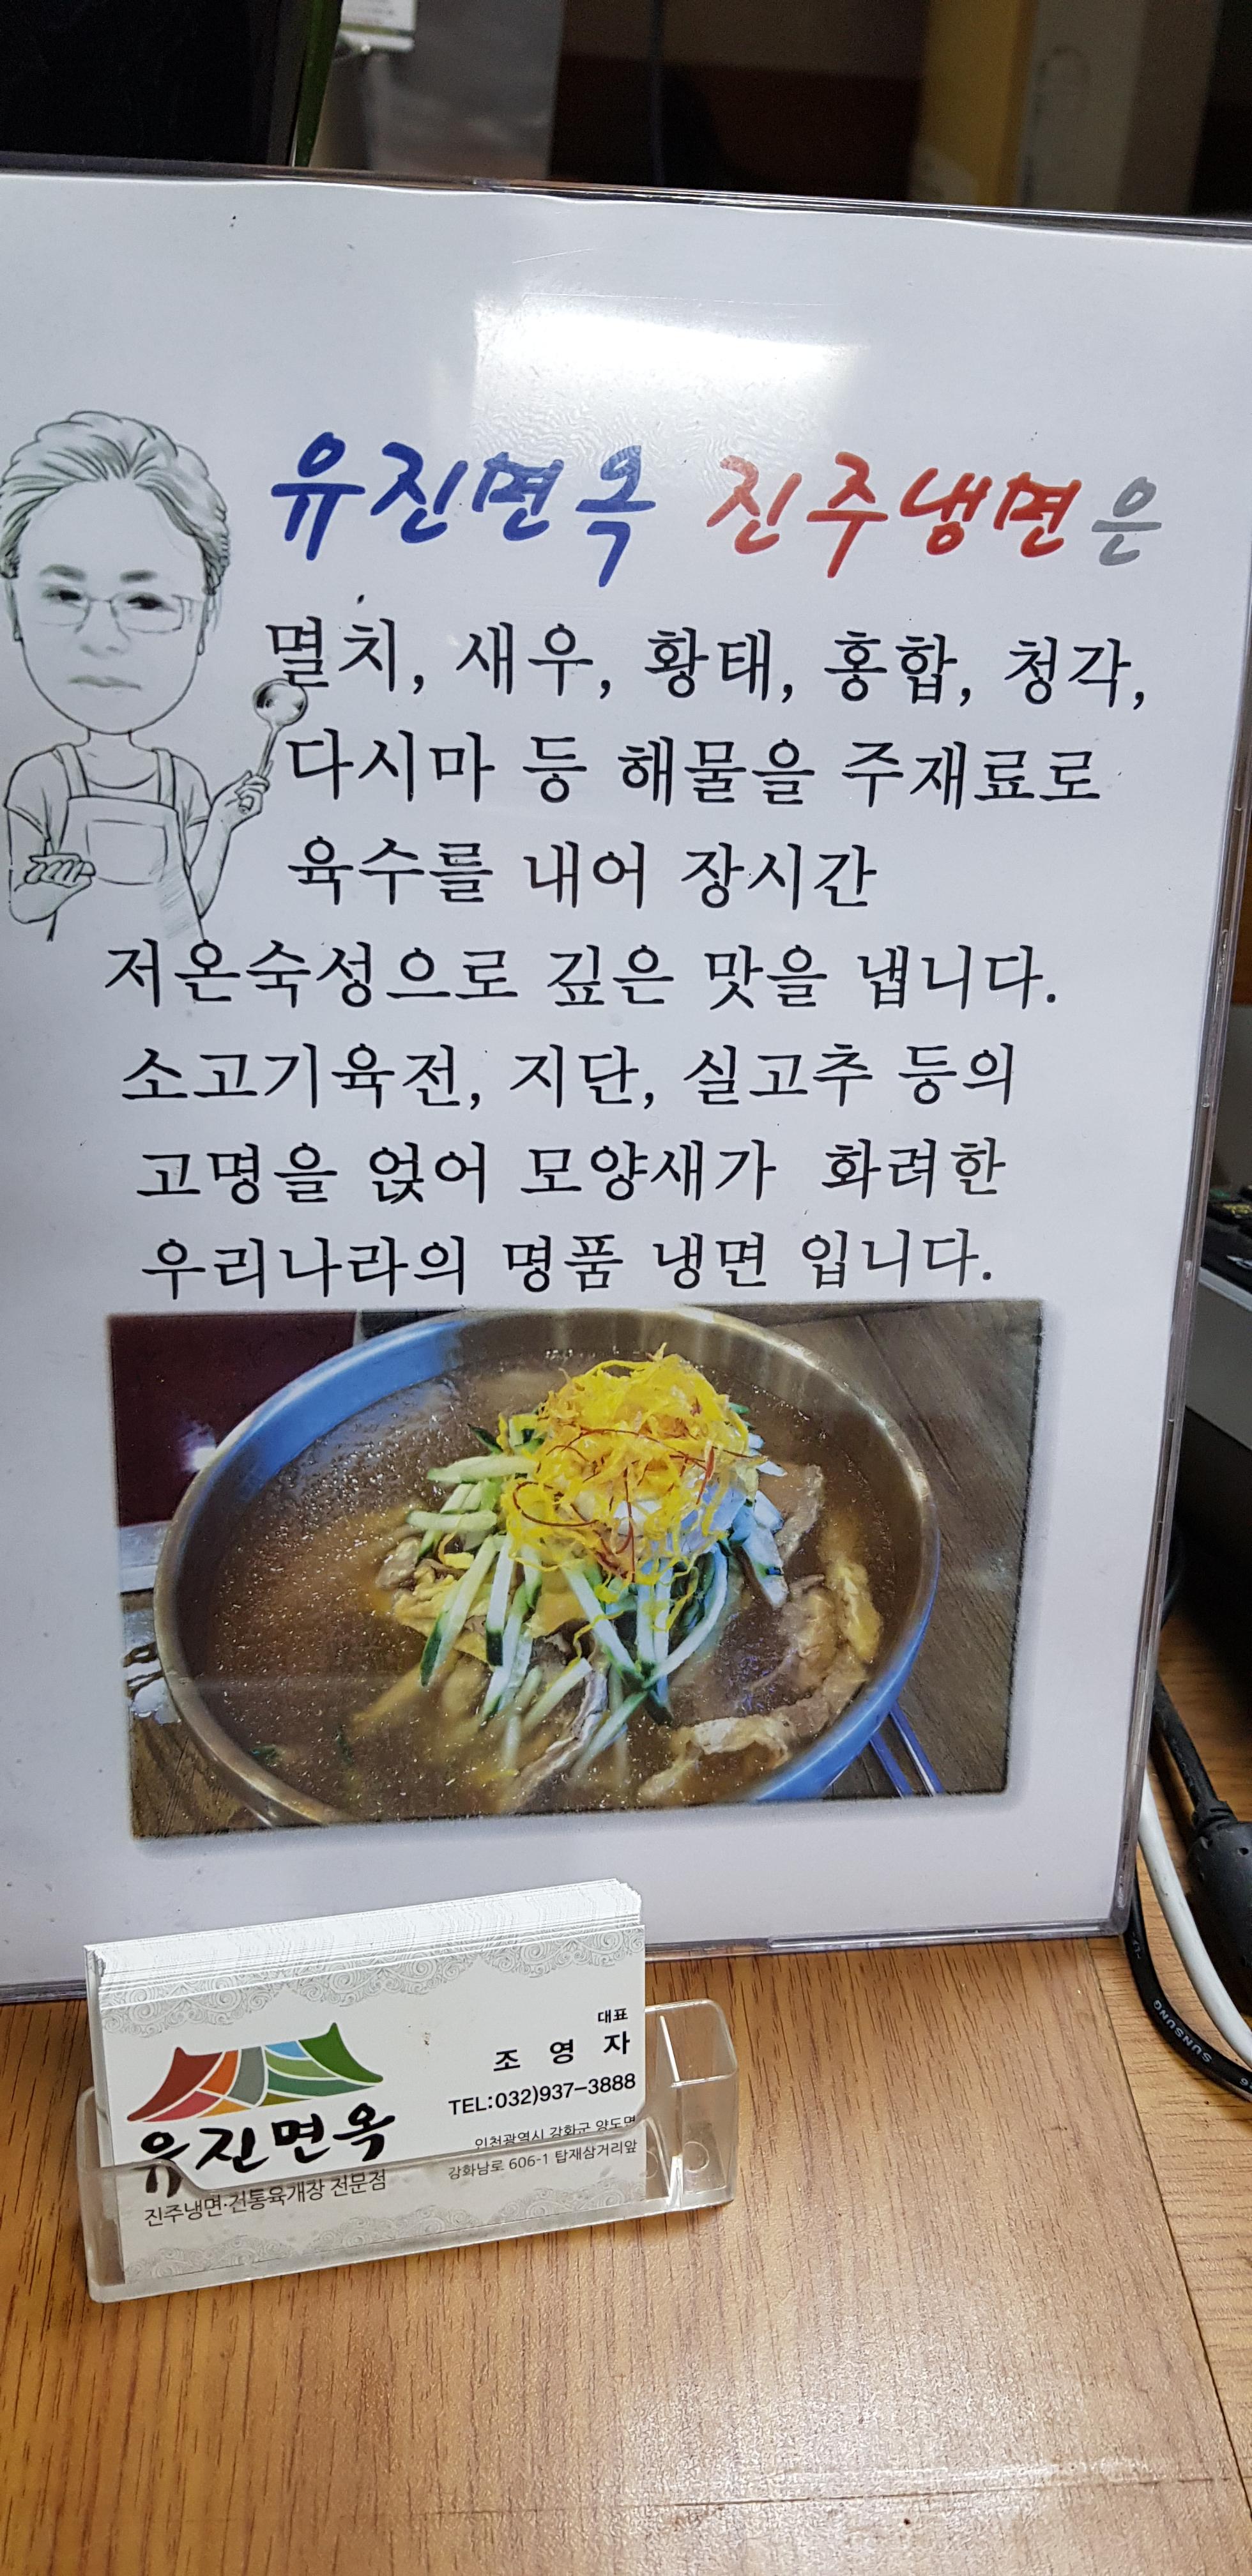 유진면옥 진주냉면은
멸치, 새우, 황태, 홍합, 청각,
다시마 등 해물을 주재료로
육수를 내어 장시간
저온숙성으로 깊은 맛을 냅니다.
소고기육전, 지단, 실고추 등의
고명을 얹어 모양새가 화려한
우리나라의 명품 냉면 입니다.
유진면옥
진주냉면·전통육개장 전문점
대표
조 영 자
TEL:032)937-3888
인천광역시 강화군 양도면
강화남로 606-1 탑재삼거리앞
SAMSUNG